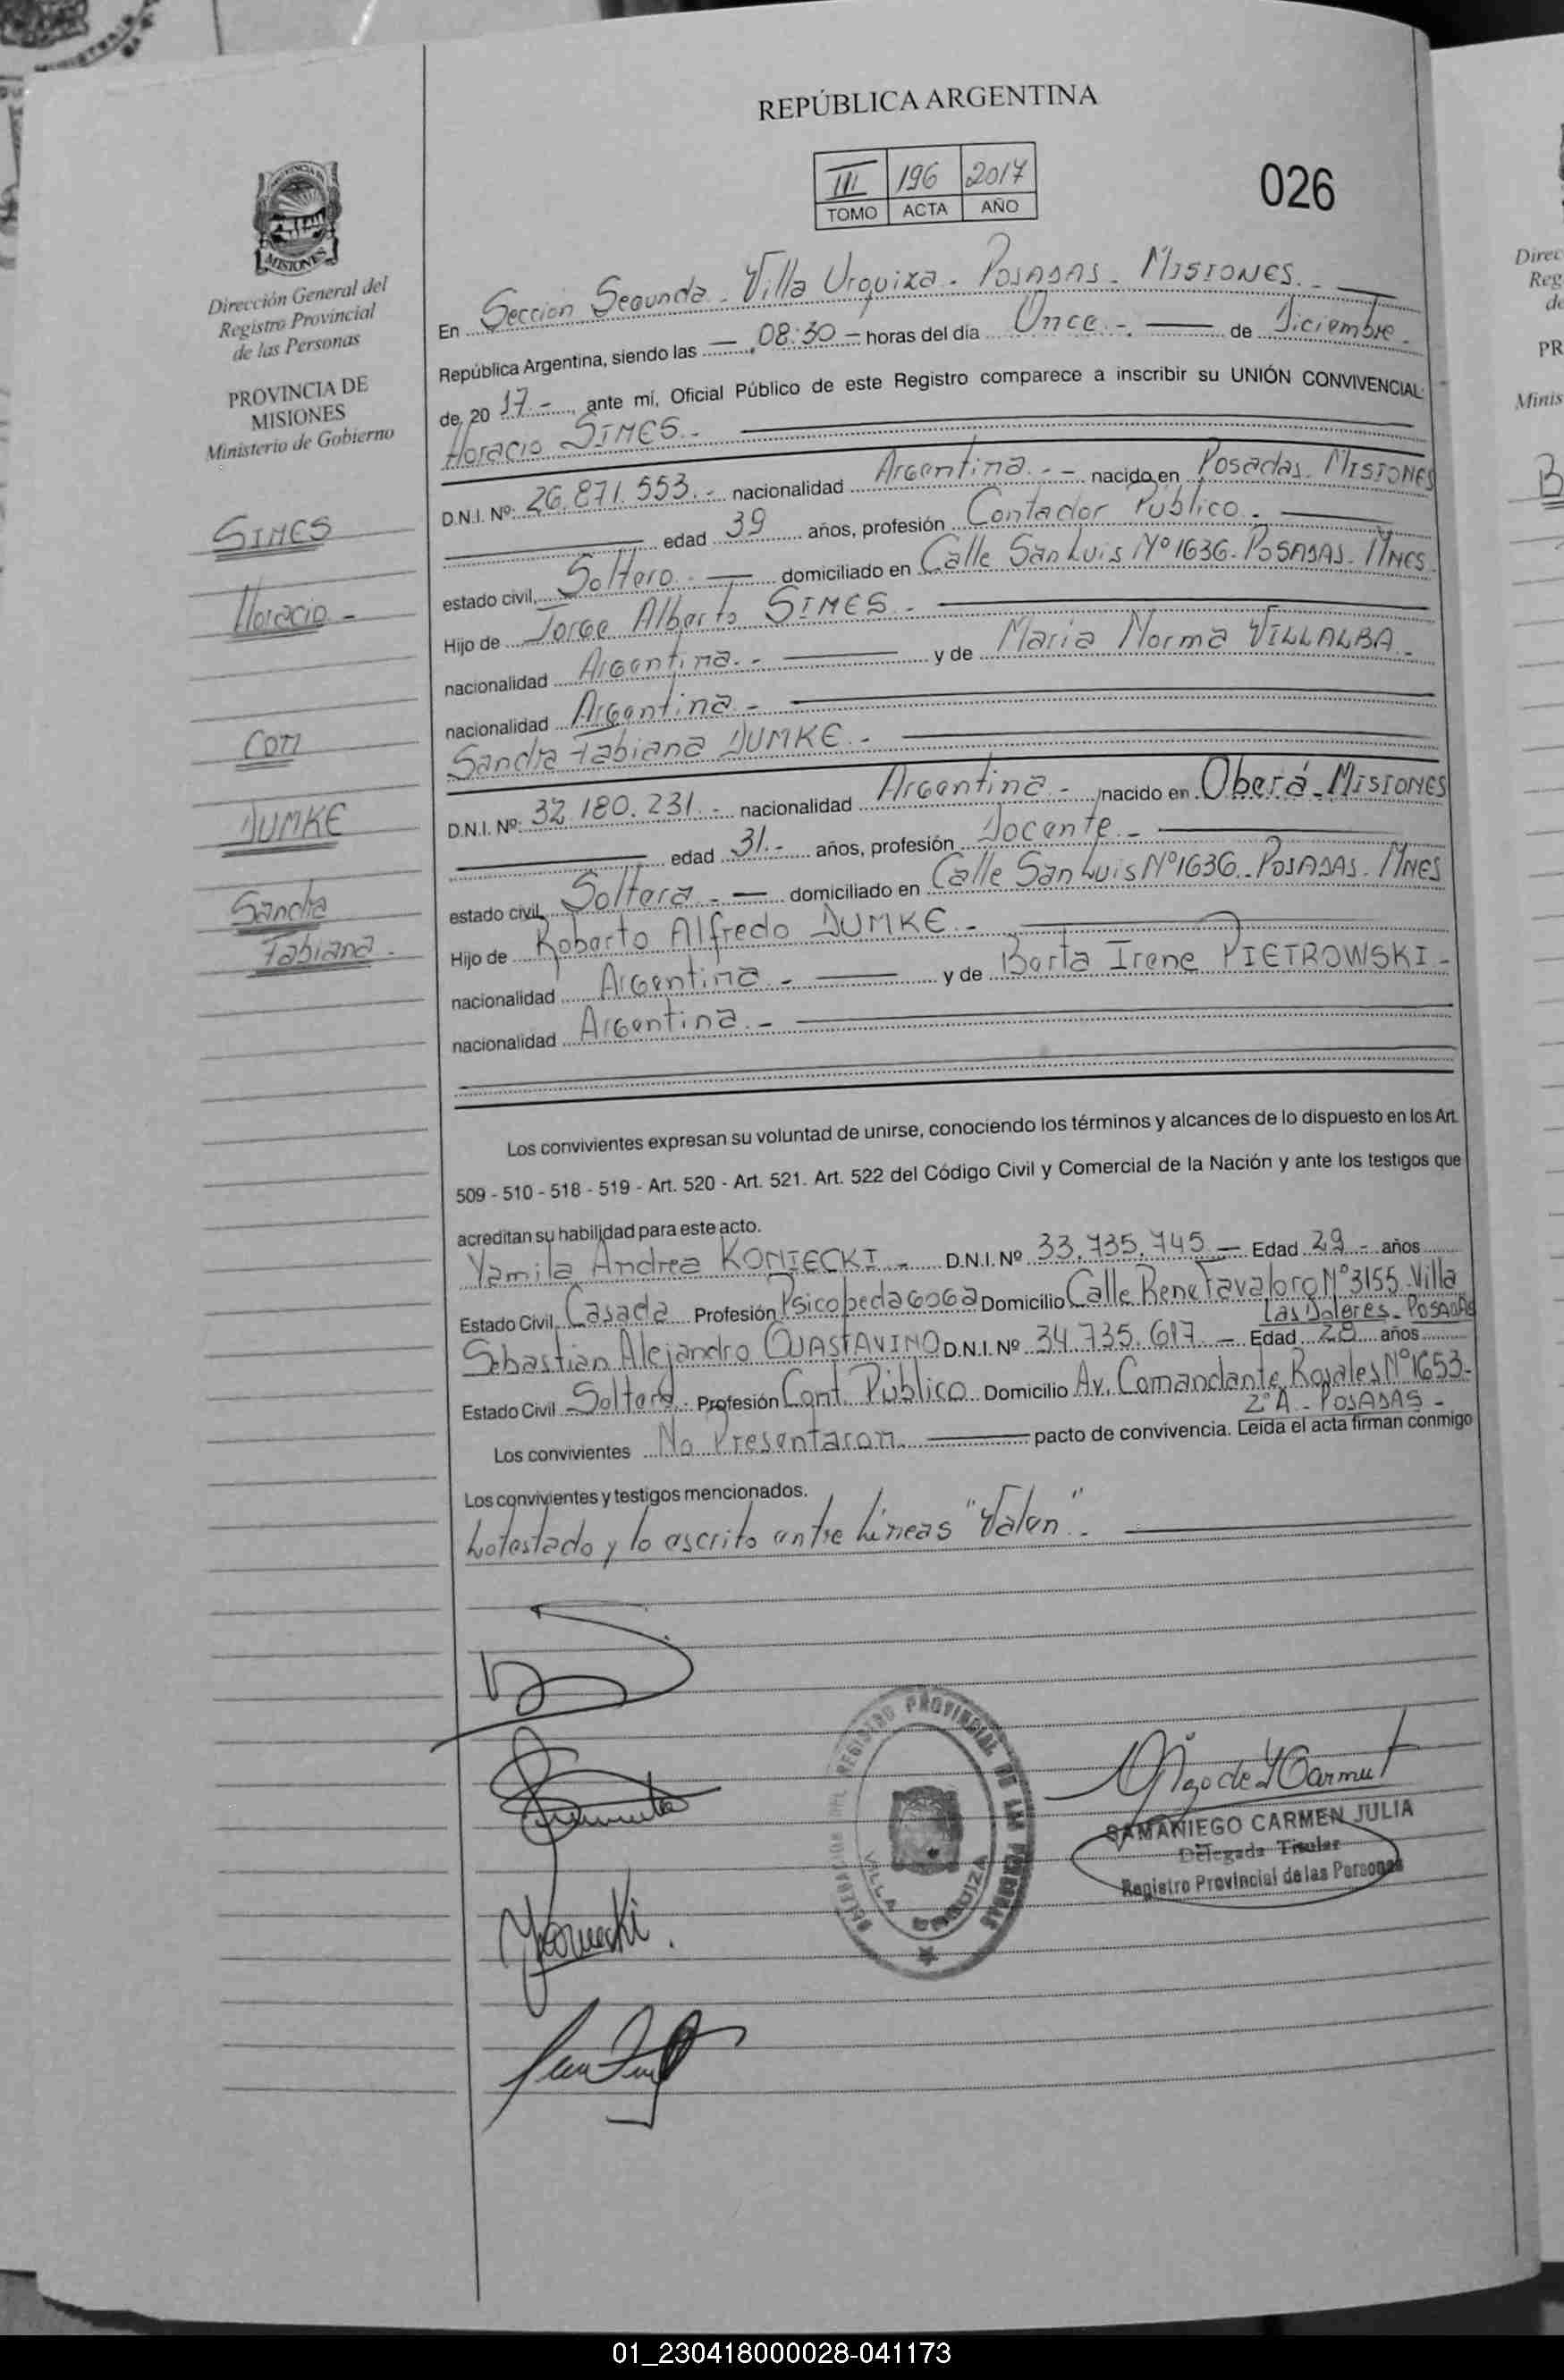 REPÚBLICA ARGENTINA
III 196 2017
TOMO ACTA AÑO
026
MISIONES
Dirección General del
Registro Provincial
de las Personas
PROVINCIA DE
MISIONES
Ministerio de Gobierno
SIMES
Horacio -
con
DUMKE
Sandra
Fabiana -
En Sección Segunda - Villa Urquiza - POSADAS - MISIONES. -
República Argentina, siendo las — 08:30 — horas del día Once. - — de Diciembre -
de 20 17 - , ante mí, Oficial Público de este Registro comparece a inscribir su UNIÓN CONVIVENCIAL:
Horacio SIMES. -
D.N.I. Nº: 26.871.553. - nacionalidad Argentina. - - nacido en Posadas. MISIONES
edad 39 años, profesión Contador Público. -
estado civil, Soltero. - domiciliado en Calle San Luis Nº 1636 - POSADAS - MNES
Hijo de Jorge Alberto SIMES. -
nacionalidad Argentina. - y de Maria Norma VILLALBA. -
nacionalidad Argentina -
Sandra Fabiana DUMKE. -
D.N.I. Nº: 32.180.231. - nacionalidad Argentina - nacido en Oberá - MISIONES
edad 31. - años, profesión Docente. -
estado civil, Soltera. - domiciliado en Calle San Luis Nº 1636. - POSADAS - MNES
Hijo de Roberto Alfredo DUMKE. -
nacionalidad Argentina - y de Berta Irene PIETROWSKI -
nacionalidad Argentina. -
Los convivientes expresan su voluntad de unirse, conociendo los términos y alcances de lo dispuesto en los Art.
509 - 510 - 518 - 519 - Art. 520 - Art. 521. Art. 522 del Código Civil y Comercial de la Nación y ante los testigos que
acreditan su habilidad para este acto.
Yamila Andrea KONIECKI - D.N.I. Nº 33.735.745 - Edad 29 - años
Estado Civil Casada Profesión Psicopedagoga Domicilio Calle Rene Favaloro Nº 3155 - Villa
Las Dolores - POSADAS
Sebastián Alejandro GUASTAVINO D.N.I. Nº 34.735.617 - Edad 28 años
Estado Civil Soltero - Profesión Cont. Público Domicilio Av. Comandante Rosales Nº 1653 -
2º A - POSADAS -
Los convivientes No Presentaron. pacto de convivencia. Leída el acta firman conmigo
Los convivientes y testigos mencionados.
Lo testado y lo escrito entre Líneas "Valen". -
DELEGACION DEL REGISTRO PROVINCIAL DE LAS PERSONAS
VILLA URQUIZA
SAMANIEGO CARMEN JULIA
Delegada Titular
Registro Provincial de las Personas
Direc
Reg
de
PR
Minis
01_230418000028-041173